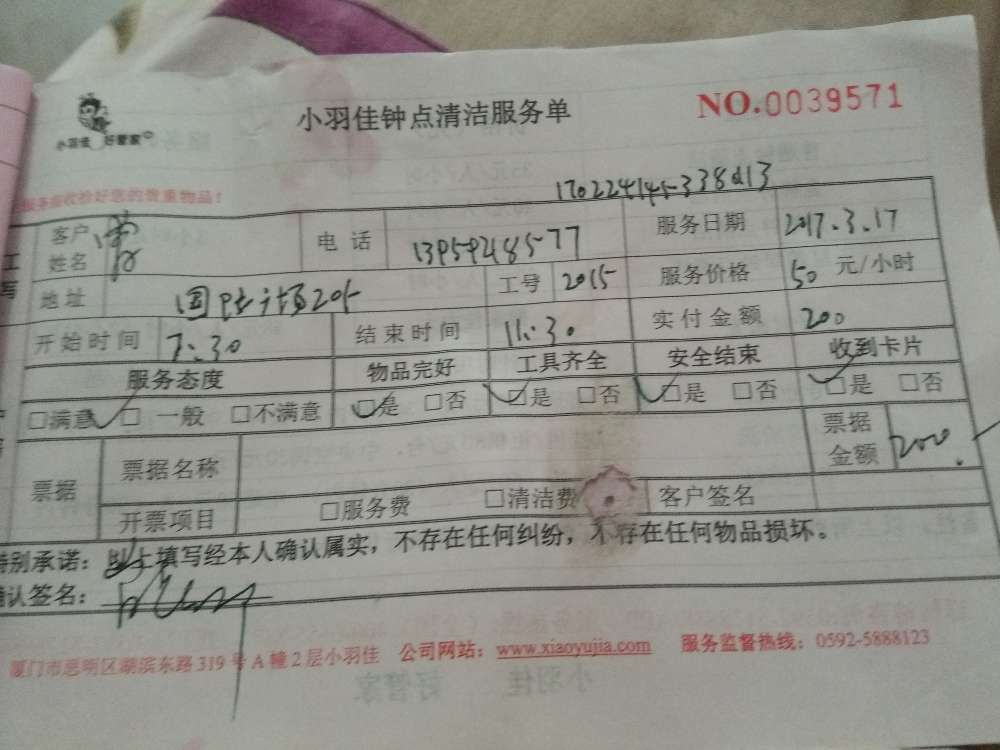 小羽佳 好管家
小羽佳钟点清洁服务单
NO.0039571
服务前收拾好您的贵重物品！
客户姓名 电话 服务日期 2017.3.17
地址 工号 2015 服务价格 50 元/小时
开始时间 7:30 结束时间 11:30 实付金额 200
服务态度 物品完好 工具齐全 安全结束 收到卡片
□满意 □ 一般 □不满意 □是 □否 □是 □否 □是 □否 □是 □否
票据 票据名称 票据金额 200
开票项目 □服务费 □清洁费 客户签名
特别承诺：以上填写经本人确认属实，不存在任何纠纷，不存在任何物品损坏。
确认签名：
厦门市思明区湖滨东路319号A幢2层小羽佳 公司网站：www.xiaoyujia.com 服务监督热线：0592-5888123